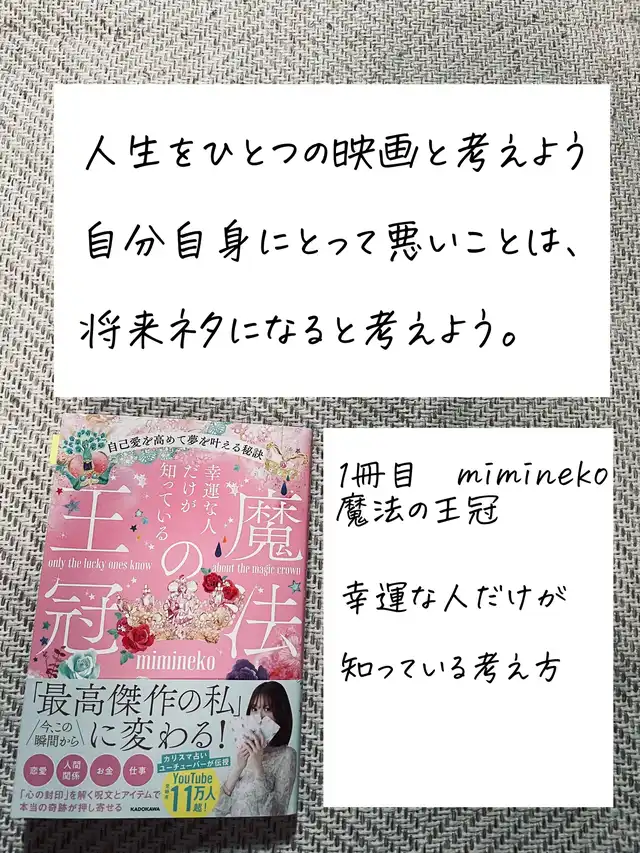 人生をひとつの映画と考えよう
自分自身にとって悪いことは、
将来ネタになると考えよう。
自己愛を高めて夢を叶える秘訣
幸運な人
だけが
知っている
魔法
の
王冠
only the lucky ones know
about the magic crown
mimineko
「最高傑作の私」
今、この
瞬間から
に変わる!
恋愛
人間
関係
お金
仕事
カリスマ占い
ユーチューバーが伝授
YouTube
11万人
超!
「心の封印」を解く呪文とアイテムで
本当の奇跡が押し寄せる
KADOKAWA
1冊目 mimineko
魔法の王冠
幸運な人だけが
知っている考え方